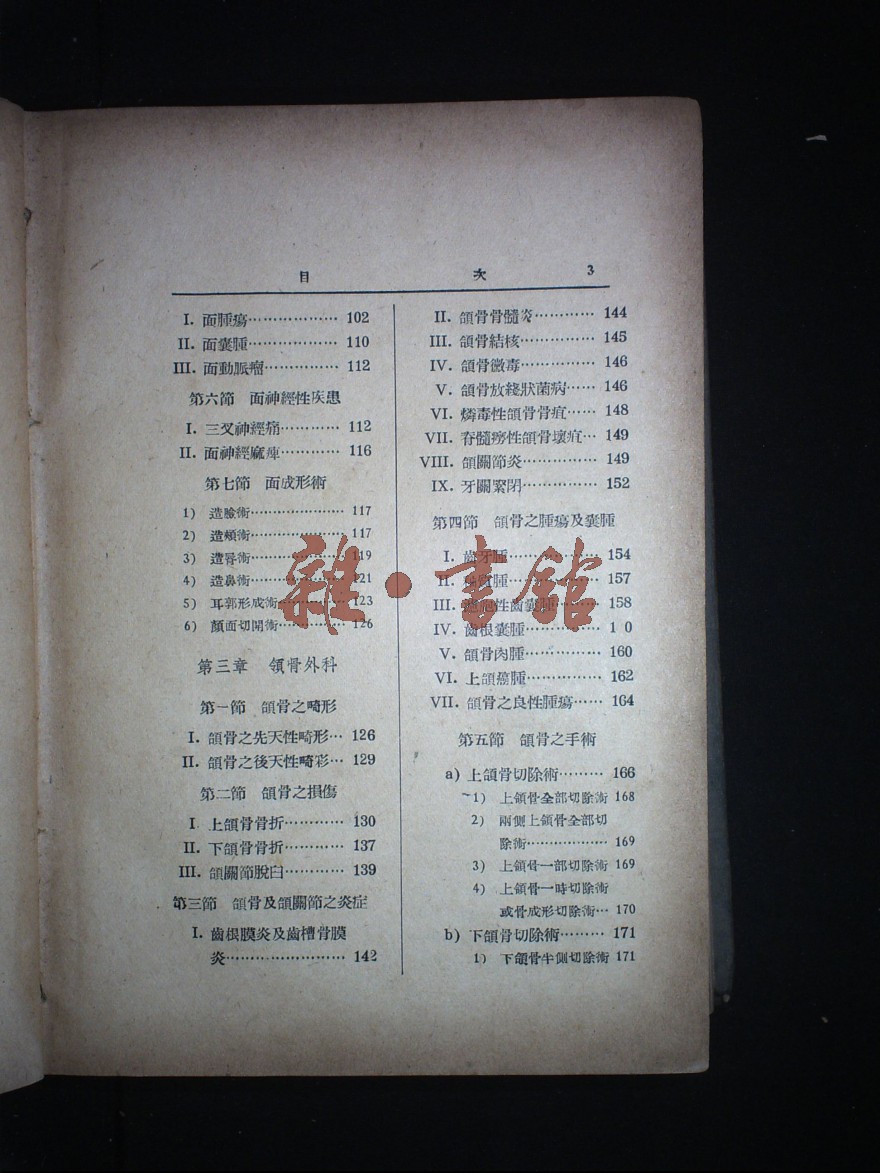 目 次 3
I. 面腫瘍……………… 102
II. 面囊腫……………… 110
III. 面動脈瘤…………… 112
第六節 面神經性疾患
I. 三叉神經痛………… 112
II. 面神經麻痺………… 116
第七節 面成形術
1) 造臉術………………… 117
2) 造頰術………………… 117
3) 造唇術………………… 119
4) 造鼻術………………… 121
5) 耳郭形成術…………… 123
6) 顏面切開術…………… 126
第三章 頜骨外科
第一節 頜骨之畸形
I. 頜骨之先天性畸形… 126
II. 頜骨之後天性畸彩… 129
第二節 頜骨之損傷
I. 上頜骨骨折………… 130
II. 下頜骨骨折………… 137
III. 頜關節脫臼………… 139
第三節 頜骨及頜關節之炎症
I. 齒根膜炎及齒槽骨膜
炎…………………… 142
II. 頜骨骨髓炎………… 144
III. 頜骨結核…………… 145
IV. 頜骨黴毒…………… 146
V. 頜骨放綫狀菌病…… 146
VI. 燐毒性頜骨骨疽…… 148
VII. 脊髓癆性頜骨壞疽… 149
VIII. 頜關節炎…………… 149
IX. 牙關緊閉…………… 152
第四節 頜骨之腫瘍及囊腫
I. 齒牙腫……………… 154
II. 腫……………… 157
III. 性齒囊腫……… 158
IV. 齒根囊腫…………… 1 0
V. 頜骨肉腫…………… 160
VI. 上頜癌腫…………… 162
VII. 頜骨之良性腫瘍…… 164
第五節 頜骨之手術
a) 上頜骨切除術……… 166
1) 上頜骨全部切除術 168
2) 兩側上頜骨全部切
除術……………… 169
3) 上頜骨一部切除術 169
4) 上頜骨一時切除術
或骨成形切除術… 170
b) 下頜骨切除術……… 171
1) 下頜骨半側切除術 171
雜·書館